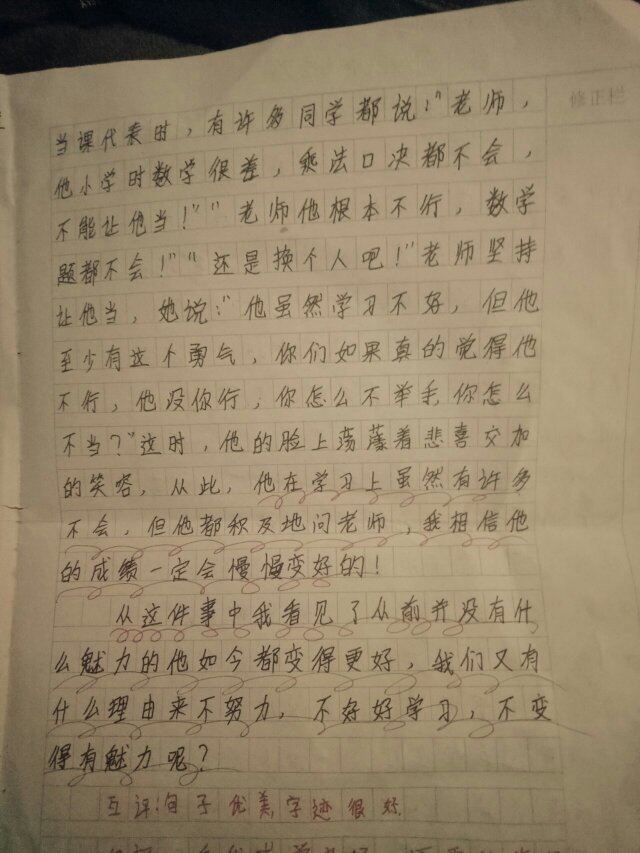 修正栏
当课代表时，有许多同学都说：“老师，
他小学时数学很差，乘法口决都不会，
不能让他当！”“老师他根本不行，数学
题都不会！”“还是换个人吧！”老师坚持
让他当，她说：“他虽然学习不好，但他
至少有这个勇气，你们如果真的觉得他
不行，他没你行，你怎么不举手，你怎么
不当？”这时，他的脸上荡漾着悲喜交加
的笑容，从此，他在学习上虽然有许多
不会，但他都积及地问老师，我相信他
的成绩一定会慢慢变好的！
从这件事中我看见了从前并没有什
么魅力的他如今都变得更好，我们又有
什么理由来不努力，不好好学习，不变
得有魅力呢？
互评：句子优美，字迹很好